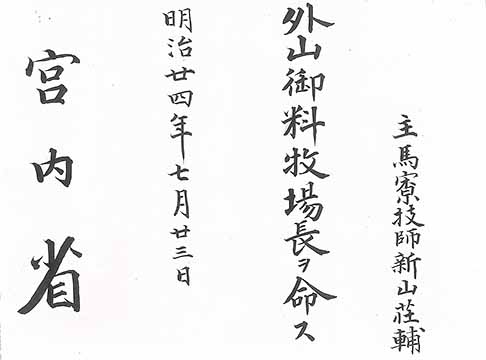 主馬寮技師新山荘輔
外山御料牧場長ヲ命ス
明治廿四年七月廿三日
宮内省